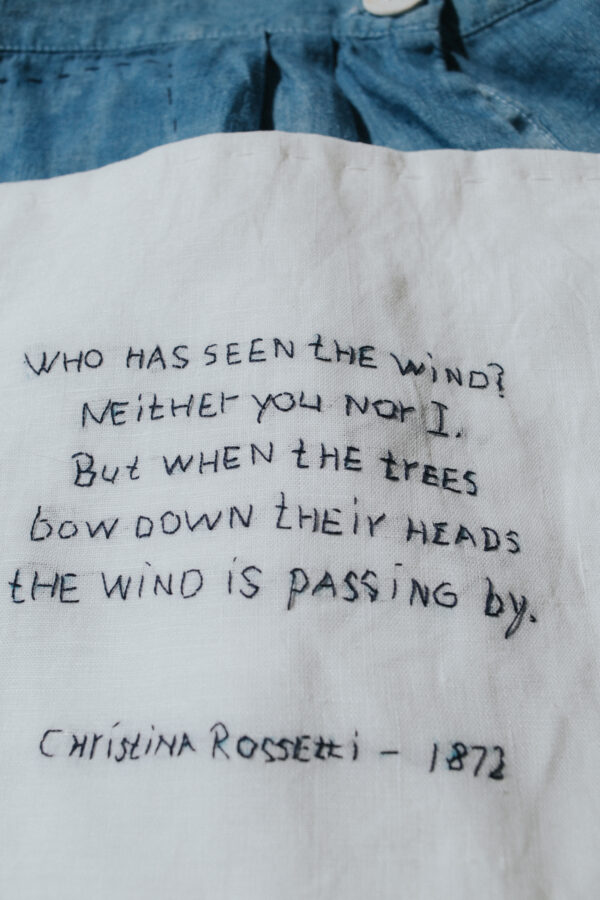 WHO HAS SEEN THE WIND?
NEITHER YOU NOR I.
BUT WHEN THE TREES
BOW DOWN THEIR HEADS
THE WIND IS PASSING BY.
CHRISTINA ROSSETTI - 1872